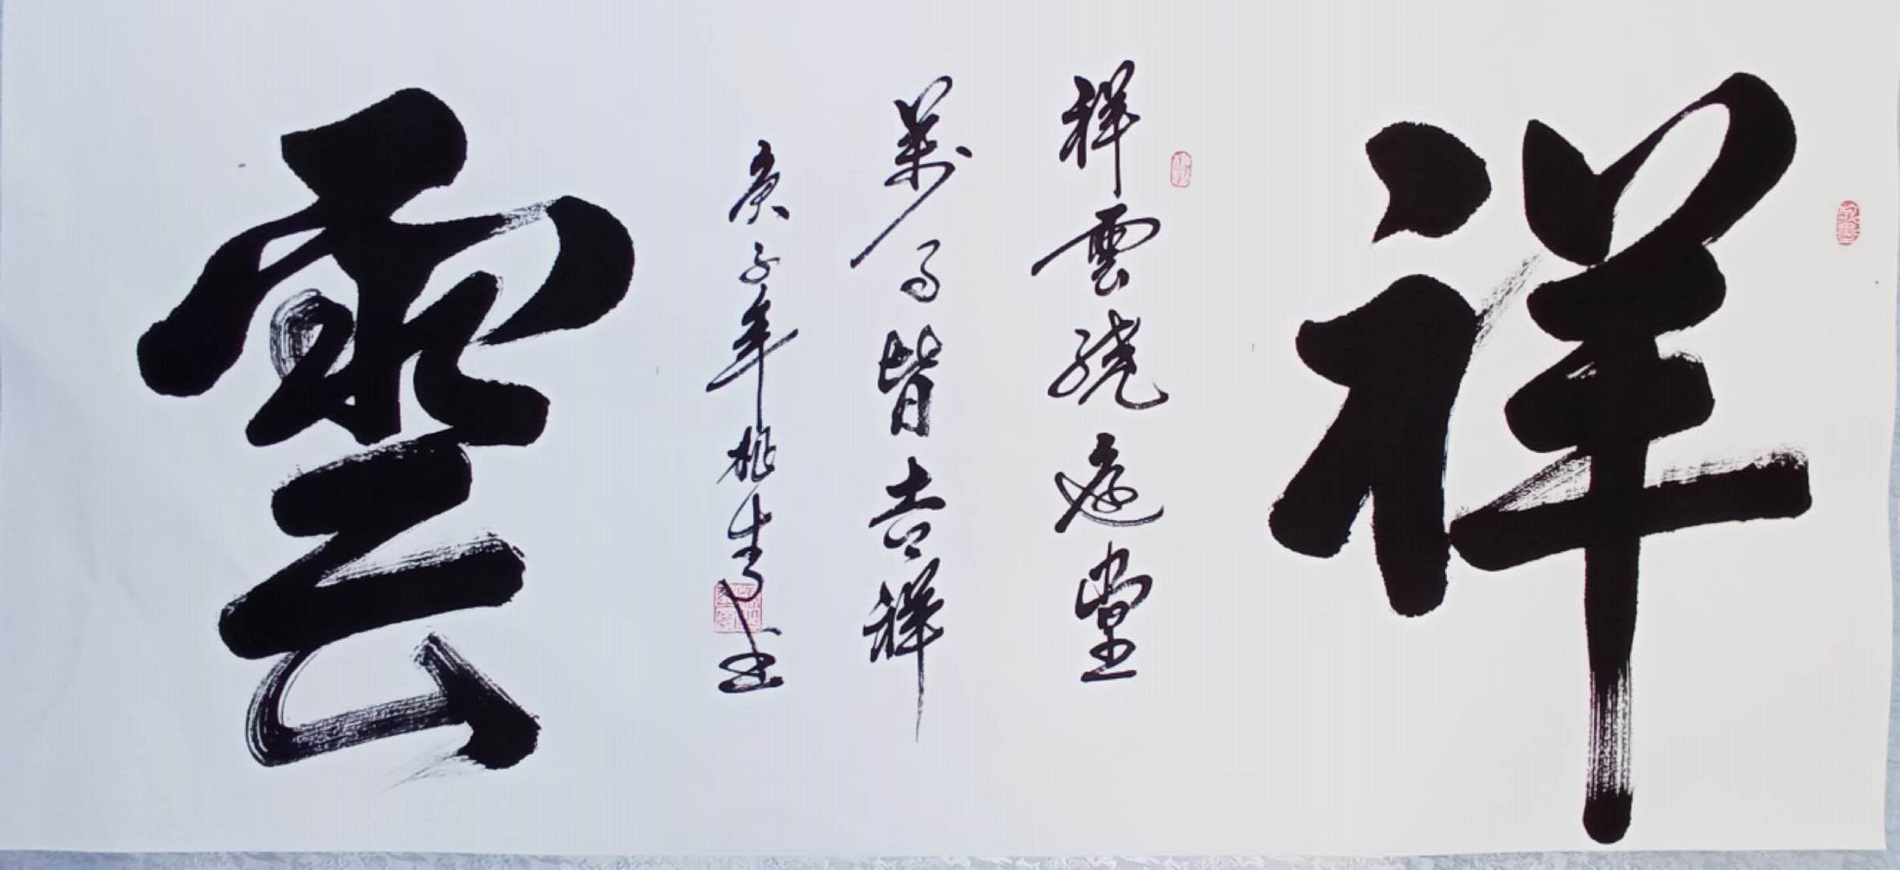 祥
祥雲繞庭堂
萬事皆吉祥
庚子年桃生書
雲